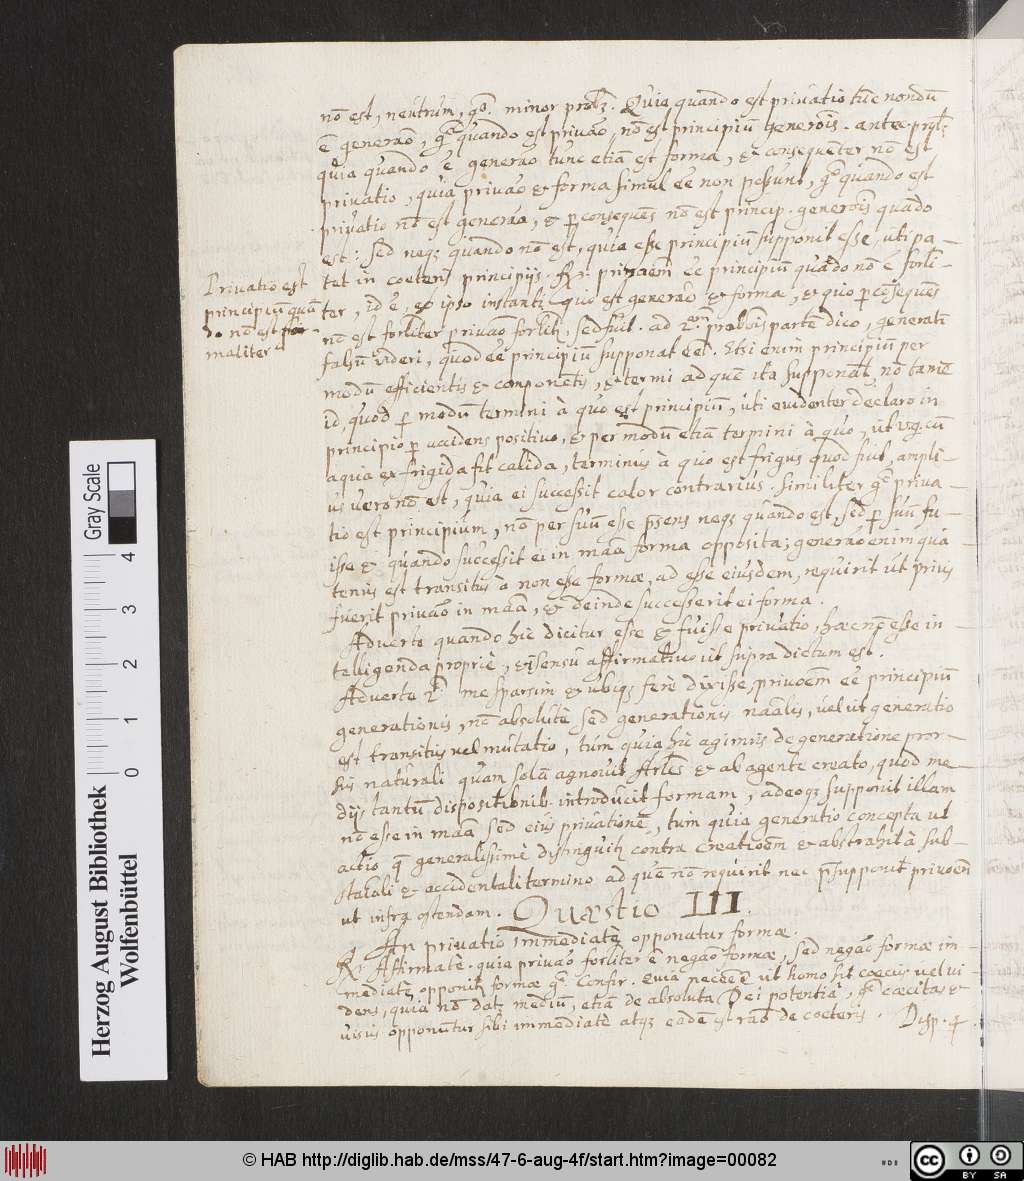 nō est, neutrum, gº. minor probʒ. Quia quando est privatio tūc nondū
ē generaō, gº quando est privaō, nō est principiū generōis. antec. probʒ
quia quando ē generaō tunc etiā est forma, & consequenter nō est
privatio, quia privaō & forma simul eē non possunt, gº quando est
privatio nō est generaō, & p consequēs nō est princip. generōis quādo
est: Sed neqʒ quando nō est, quia esse principiū supponit esse, uti pa-
tet in coeteris principijs. Rr. privaēm eē principiū quādo nō ē forli-
ter, id ē, eo ipso instanti quo est generaō & forma, & quo p cōsequēs
nō est forliter privaō forlitr, sed fuit. ad 2am probōis partē dico, generatī
falsū videri, quod eē principiū supponat eē. Etsi enim principiū per
modū efficientis & componētis, & termi ad quē ita supponāt, nō tamē
id, quod p modū termini à quo est principiū, uti evidenter declaro in
principio p accidens positivo, & per modū etiā termini à quo, ut vg. cū
aqua ex frigida fit calida, terminus à quo est frigus quod fuit, ampli-
us vero nō est, quia ei successit calor contrarius. Similiter gº priva-
tio est principium, nō per suū esse psens neqʒ quando est, sed p suū fu-
isse & quando successit ei in maā forma opposita; generaō enim qua
tenus est transitus à non esse formæ, ad esse eiusdem, requirit ut prius
fuerit privaō in maā, & deinde successerit ei forma.
Adverte quando hic dicitur esse & fuisse privatio, hæc nō esse in-
telligenda propriè, & sensū affirmativo ut supra dictum est.
Adverte 2º me sparsim & ubiqʒ ferè dixisse, privoēm eē principiū
generationis, nō absolutè sed generationis naālis, vel ut generatio
est transitus vel mutatio, tùm quia hic agimus de generatione pror-
sus naturali quam solā agnovit Arles & ab agente creato, quod me-
dijs tantū dispositionib. introducit formam, adeoqʒ supponit illam
nō esse in maā sed eius privationē, tum quia generatio concepta ut
actio q generalissimè distinguitr contra creatioēm & abstrahit à sub-
stāali & accidentali termino ad quē nō requirit nec psupponit privoēm
ut infra ostendam. Quæstio III.
An privatio immediatè opponatur formæ.
Rr. Affirmatè. quia privaō forliter ē negaō formæ, sed negaō formæ im-
mediatè opponitr formæ gº. Confir. Quia necēē ē ut homo sit coecus vel vi
dens, quia nō datr mediū, etiā de absoluta Dei potentia, gº cæcitas &
visus opponūtur sibi immediatè atqʒ eadē est raō de coeteris. Disp. 4.
Privatio est
principiū quā
do nō est for-
maliter
Herzog August Bibliothek
Wolfenbüttel
0 1 2 3 4
Gray Scale
© HAB http://diglib.hab.de/mss/47-6-aug-4f/start.htm?image=00082
cc BY SA